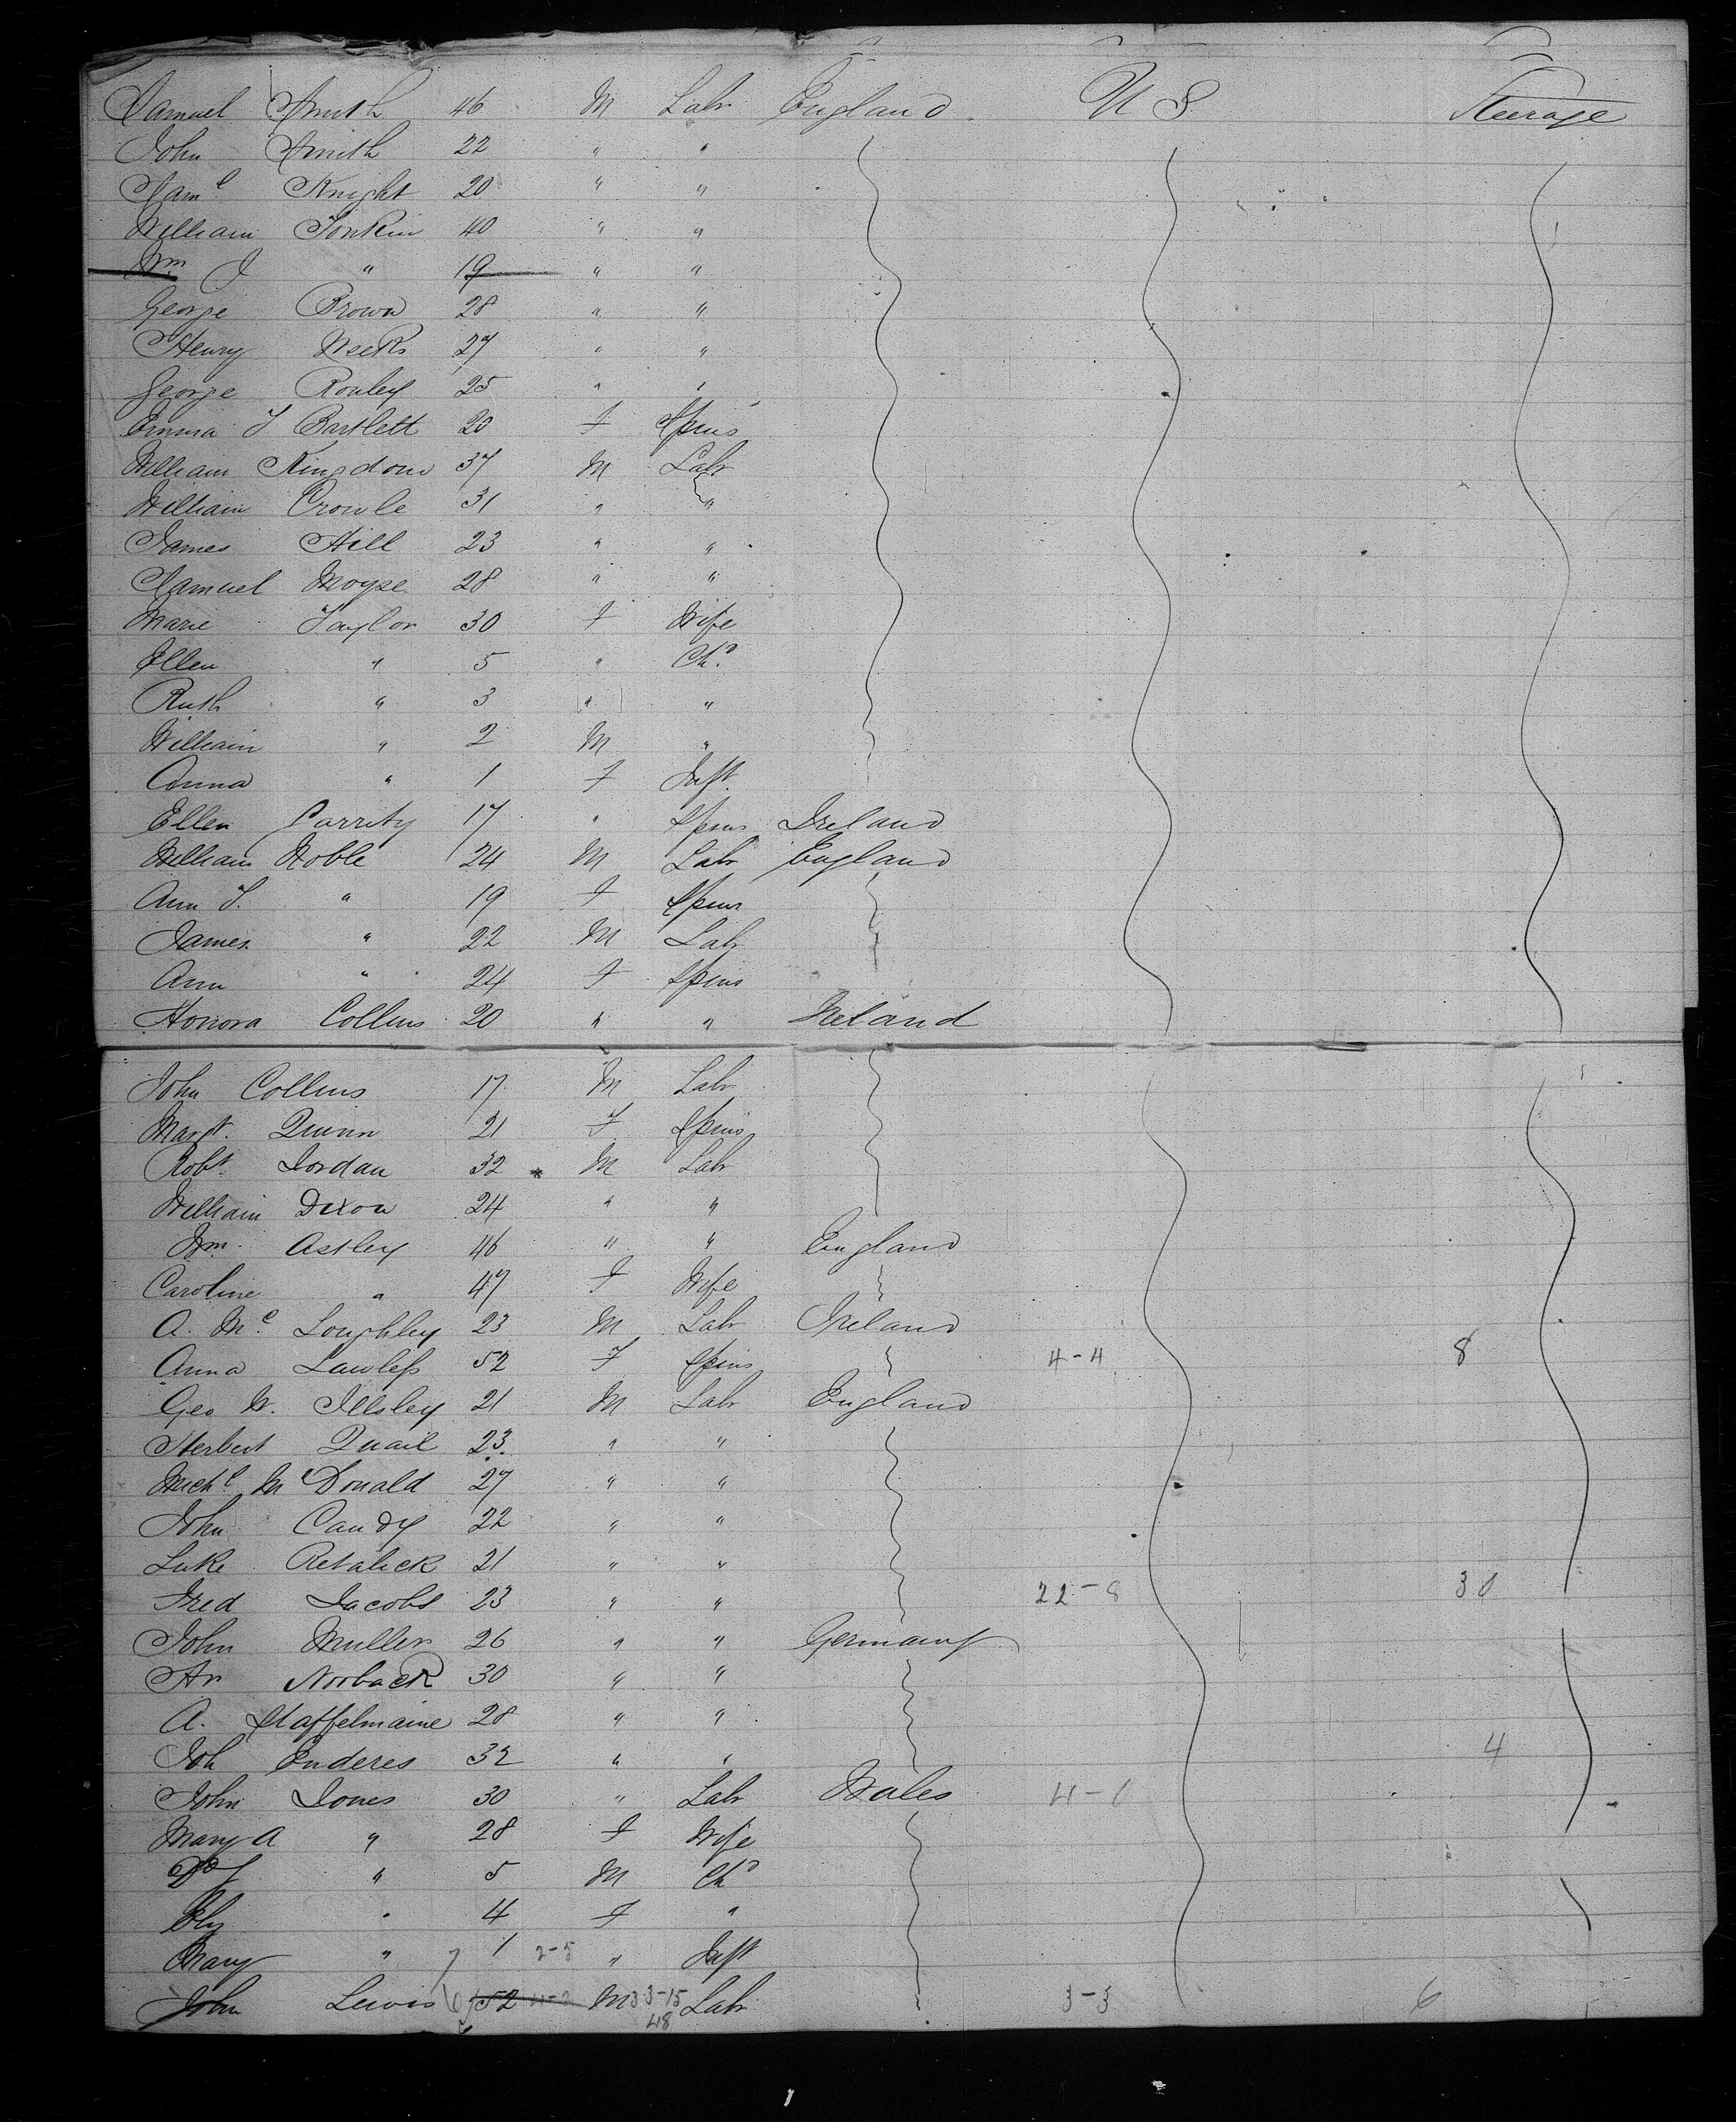 Samuel Smith 46 M Labr England U S Steerage
John Smith 22 " "
Saml Knight 20 " "
William Tonkin 40 " "
Wm J " 19 " "
George Brown 28 " "
Henry Weeks 27 " "
George Rowley 25 " "
Emma J Bartlett 20 F Spins
William Kingdom 37 M Labr
William Crowle 31 " "
James Hill 23 " "
Samuel Moyse 28 " "
Marie Taylor 30 F Wife
Ellen " 5 " Chd
Ruth " 3 " "
William " 2 M "
Anna " 1 F Inft
Ellen Garrity 17 " Spins Ireland
William Noble 24 M Labr England
Ann J. " 19 F Spins
James " 22 M Labr
Ann " 24 F Spins
Honora Collins 20 " " Ireland
John Collins 17 M Labr
Margt. Quinn 21 F Spins
Robt Jordan 32 M Labr
William Dixon 24 " "
Wm. Astley 46 " " England
Caroline " 47 F Wife
A. Mc Loughley 23 M Labr Ireland
Anna Lawless 52 F Spins 4-4 8
Geo W. Illsley 21 M Labr England
Herbert Quail 23 " "
Michl McDonald 27 " "
John Candy 22 " "
Luke Retalick 21 " "
Fred Jacobs 23 " " 22-8 30
John Muller 26 " " Germany
Norback 30 " "
A. Staffelmaine 28 " "
Joh Enderes 32 " " 4
John Jones 30 " Labr Wales 4-1
Mary A " 28 F Wife
" 5 M Chd
" 4 F "
Mary " 1 2-5 " Inft
John Lewis 52 M 33-15 Labr 3-3 6
48